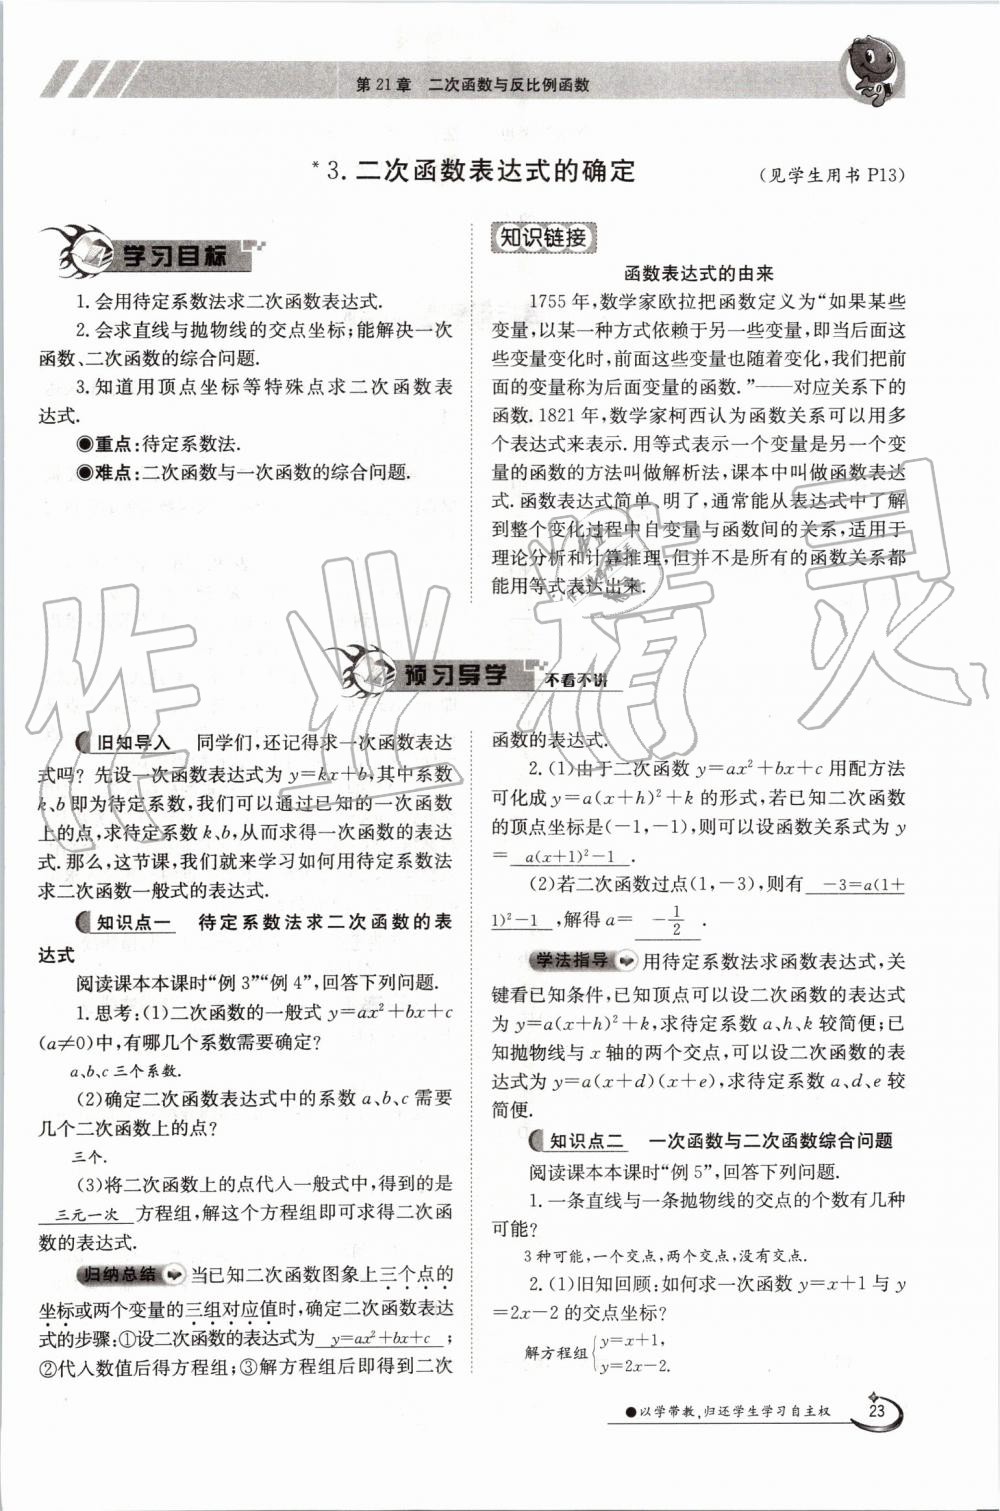 第21章　二次函数与反比例函数
*3.二次函数表达式的确定
(见学生用书 P13)
学习目标
1.会用待定系数法求二次函数表达式.
2.会求直线与抛物线的交点坐标;能解决一次
函数、二次函数的综合问题.
3.知道用顶点坐标等特殊点求二次函数表
达式.
●重点:待定系数法.
●难点:二次函数与一次函数的综合问题.
知识链接
函数表达式的由来
1755年,数学家欧拉把函数定义为“如果某些
变量,以某一种方式依赖于另一些变量,即当后面这
些变量变化时,前面这些变量也随着变化,我们把前
面的变量称为后面变量的函数.”——对应关系下的
函数.1821年,数学家柯西认为函数关系可以用多
个表达式来表示.用等式表示一个变量是另一个变
量的函数的方法叫做解析法,课本中叫做函数表达
式.函数表达式简单、明了,通常能从表达式中了解
到整个变化过程中自变量与函数间的关系,适用于
理论分析和计算推理,但并不是所有的函数关系都
能用等式表达出来.
预习导学　不看不讲
旧知导入　同学们,还记得求一次函数表达
式吗?先设一次函数表达式为y=kx+b,其中系数
k、b即为待定系数,我们可以通过已知的一次函数
上的点,求待定系数k、b,从而求得一次函数的表达
式.那么,这节课,我们就来学习如何用待定系数法
求二次函数一般式的表达式.
知识点一　待定系数法求二次函数的表
达式
阅读课本本课时“例3”“例4”,回答下列问题.
1.思考:(1)二次函数的一般式y=ax²+bx+c
(a≠0)中,有哪几个系数需要确定?
a、b、c三个系数.
(2)确定二次函数表达式中的系数a、b、c需要
几个二次函数上的点?
三个.
(3)将二次函数上的点代入一般式中,得到的是
三元一次 方程组,解这个方程组即可求得二次函
数的表达式.
归纳总结　当已知二次函数图象上三个点的
坐标或两个变量的三组对应值时,确定二次函数表达
式的步骤:①设二次函数的表达式为 y=ax²+bx+c ;
②代入数值后得方程组;③解方程组后即得到二次
函数的表达式.
2.(1)由于二次函数y=ax²+bx+c用配方法
可化成y=a(x+h)²+k的形式,若已知二次函数
的顶点坐标是(-1,-1),则可以设函数关系式为y
= a(x+1)²-1 .
(2)若二次函数过点(1,-3),则有 -3=a(1+
1)²-1 ,解得a= -1/2 .
学法指导　用待定系数法求函数表达式,关
键看已知条件,已知顶点可以设二次函数的表达式
为y=a(x+h)²+k,求待定系数a、h、k较简便;已
知抛物线与x轴的两个交点,可以设二次函数的表
达式为y=a(x+d)(x+e),求待定系数a、d、e较
简便.
知识点二　一次函数与二次函数综合问题
阅读课本本课时“例5”,回答下列问题.
1.一条直线与一条抛物线的交点的个数有几种
可能?
3种可能,一个交点,两个交点,没有交点.
2.(1)旧知回顾:如何求一次函数y=x+1与y
=2x-2的交点坐标?
解方程组{y=x+1,
y=2x-2.
●以学带教,归还学生学习自主权
23
作业精灵